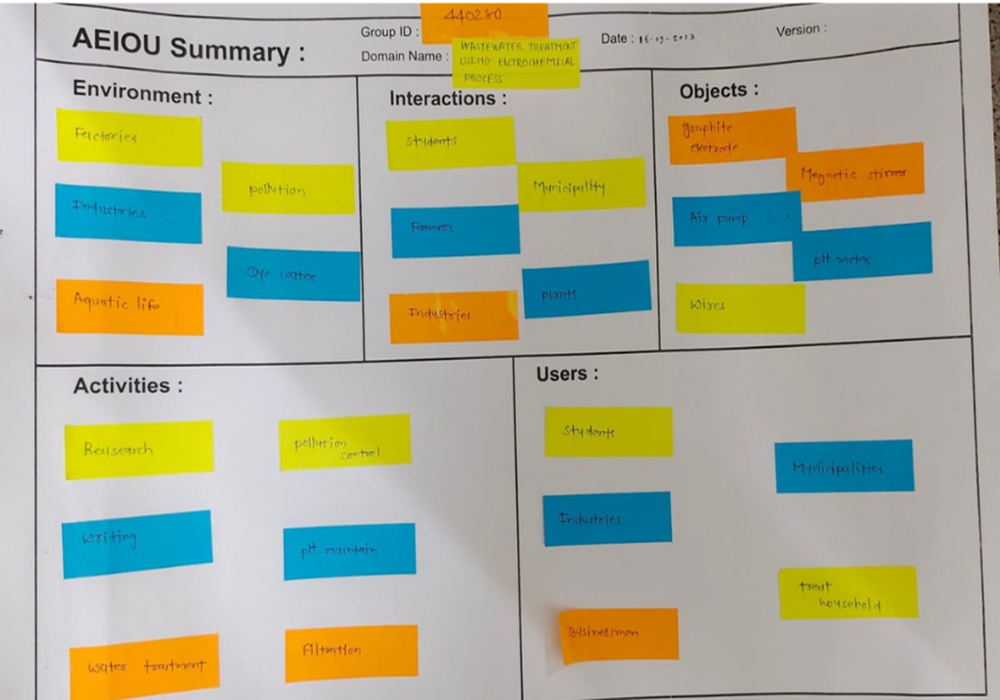 AEIOU Summary :
Group ID :
440280
Domain Name :
WASTEWATER TREATMENT
USING ELCTROCHEMICAL
PROCESS
Date : 16-09-2023
Version :
Environment :
Factories
pollution
Industries
Dye water
Aquatic life
Interactions :
students
Municipality
Farmers
plants
Industries
Objects :
graphite
electrode
Magnetic stirrer
Air pump
pH meter
Wires
Activities :
Reasearch
pollution
control
Writing
pH maintain
Water treatment
Filtration
Users :
Students
Municipalities
Industries
treat
household
Businessman